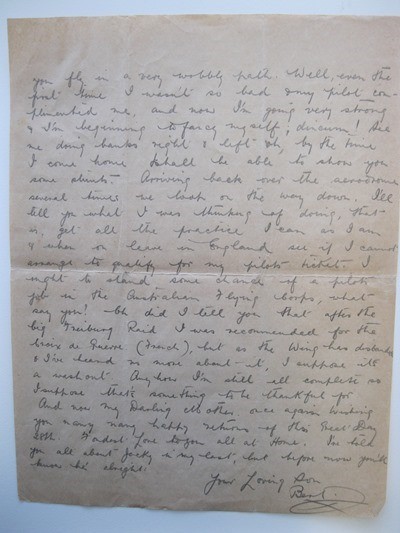 you fly in a very wobbly path. Well, even the
first time I wasn't so bad & my pilot com-
plimented me, and now I'm going very strong
& I'm beginning to fancy myself, See
me doing banks right & left Oh, by the time
I come home I shall be able to show you
some stunts. Arriving back over the aerodrome
several times we look on the way down. I'll
tell you what I was thinking of doing, that
is, get all the practice I can as I am
& when on leave in England see if I cannot
arrange to qualify for my pilots ticket. I
ought to stand some chance of a pilots
job in the Australian Flying Corps, what
say you! Oh did I tell you that after the
big Freiburg Raid I was recommended for the
Croix de Guerre (French), but as the Wing has disbanded
& I've heard no more about it, I suppose it's
a washout Anyhow I'm still all complete so
I suppose that's something to be thankful for
And now my Darling Mother, once again wishing
you many many happy returns of this Great Day
20th. Fondest Love to you all at Home. I've told
you all about Jacky in my last, but before now you'll
know he's alright!
Your Loving Son
Bert.